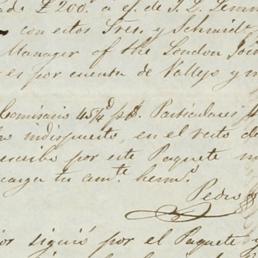 de £200. a of. de J. L. Lemm
con estos Sres. y Schmidt
Manager of the London Join
es por cuenta de Vallejo y m
Comisario 45¼ d p$. Particulares
indispuesto, en el resto de
escribo por este Paquete no
encarga tu am.te herm.o
Pedro
ios siguió por el Paquete y